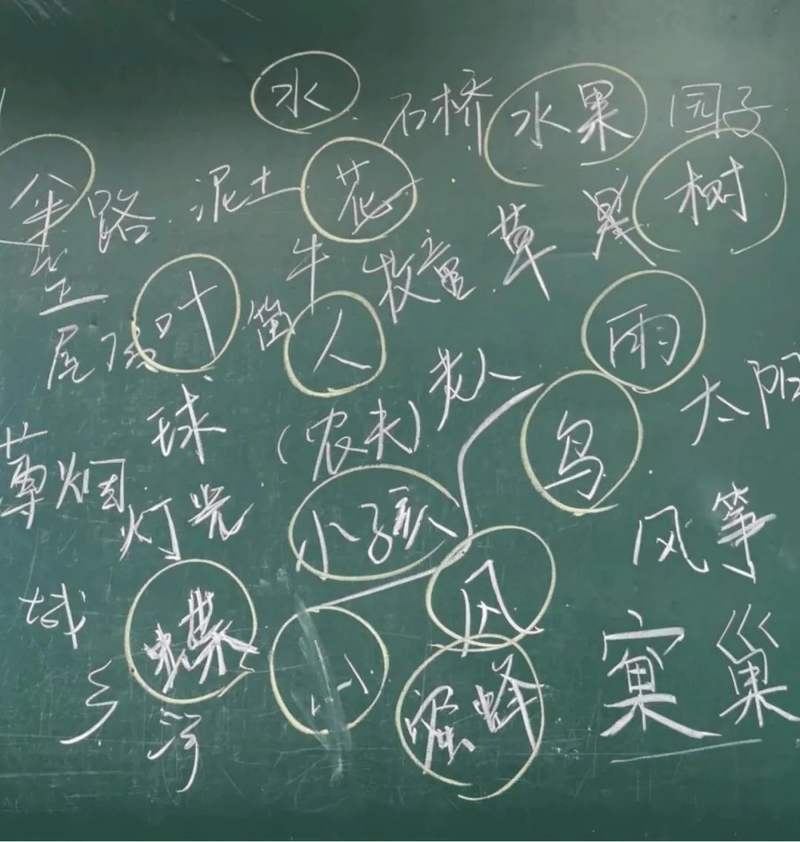 水 石桥 水果 园子
路 泥土 花 树
牛 牧童 草 果
叶 笛 人 雨
球 (农夫) 老人 鸟 太阳
烟 灯光 小孩 风筝
城 蝶 风
乡 河 蜜蜂 窠 巢